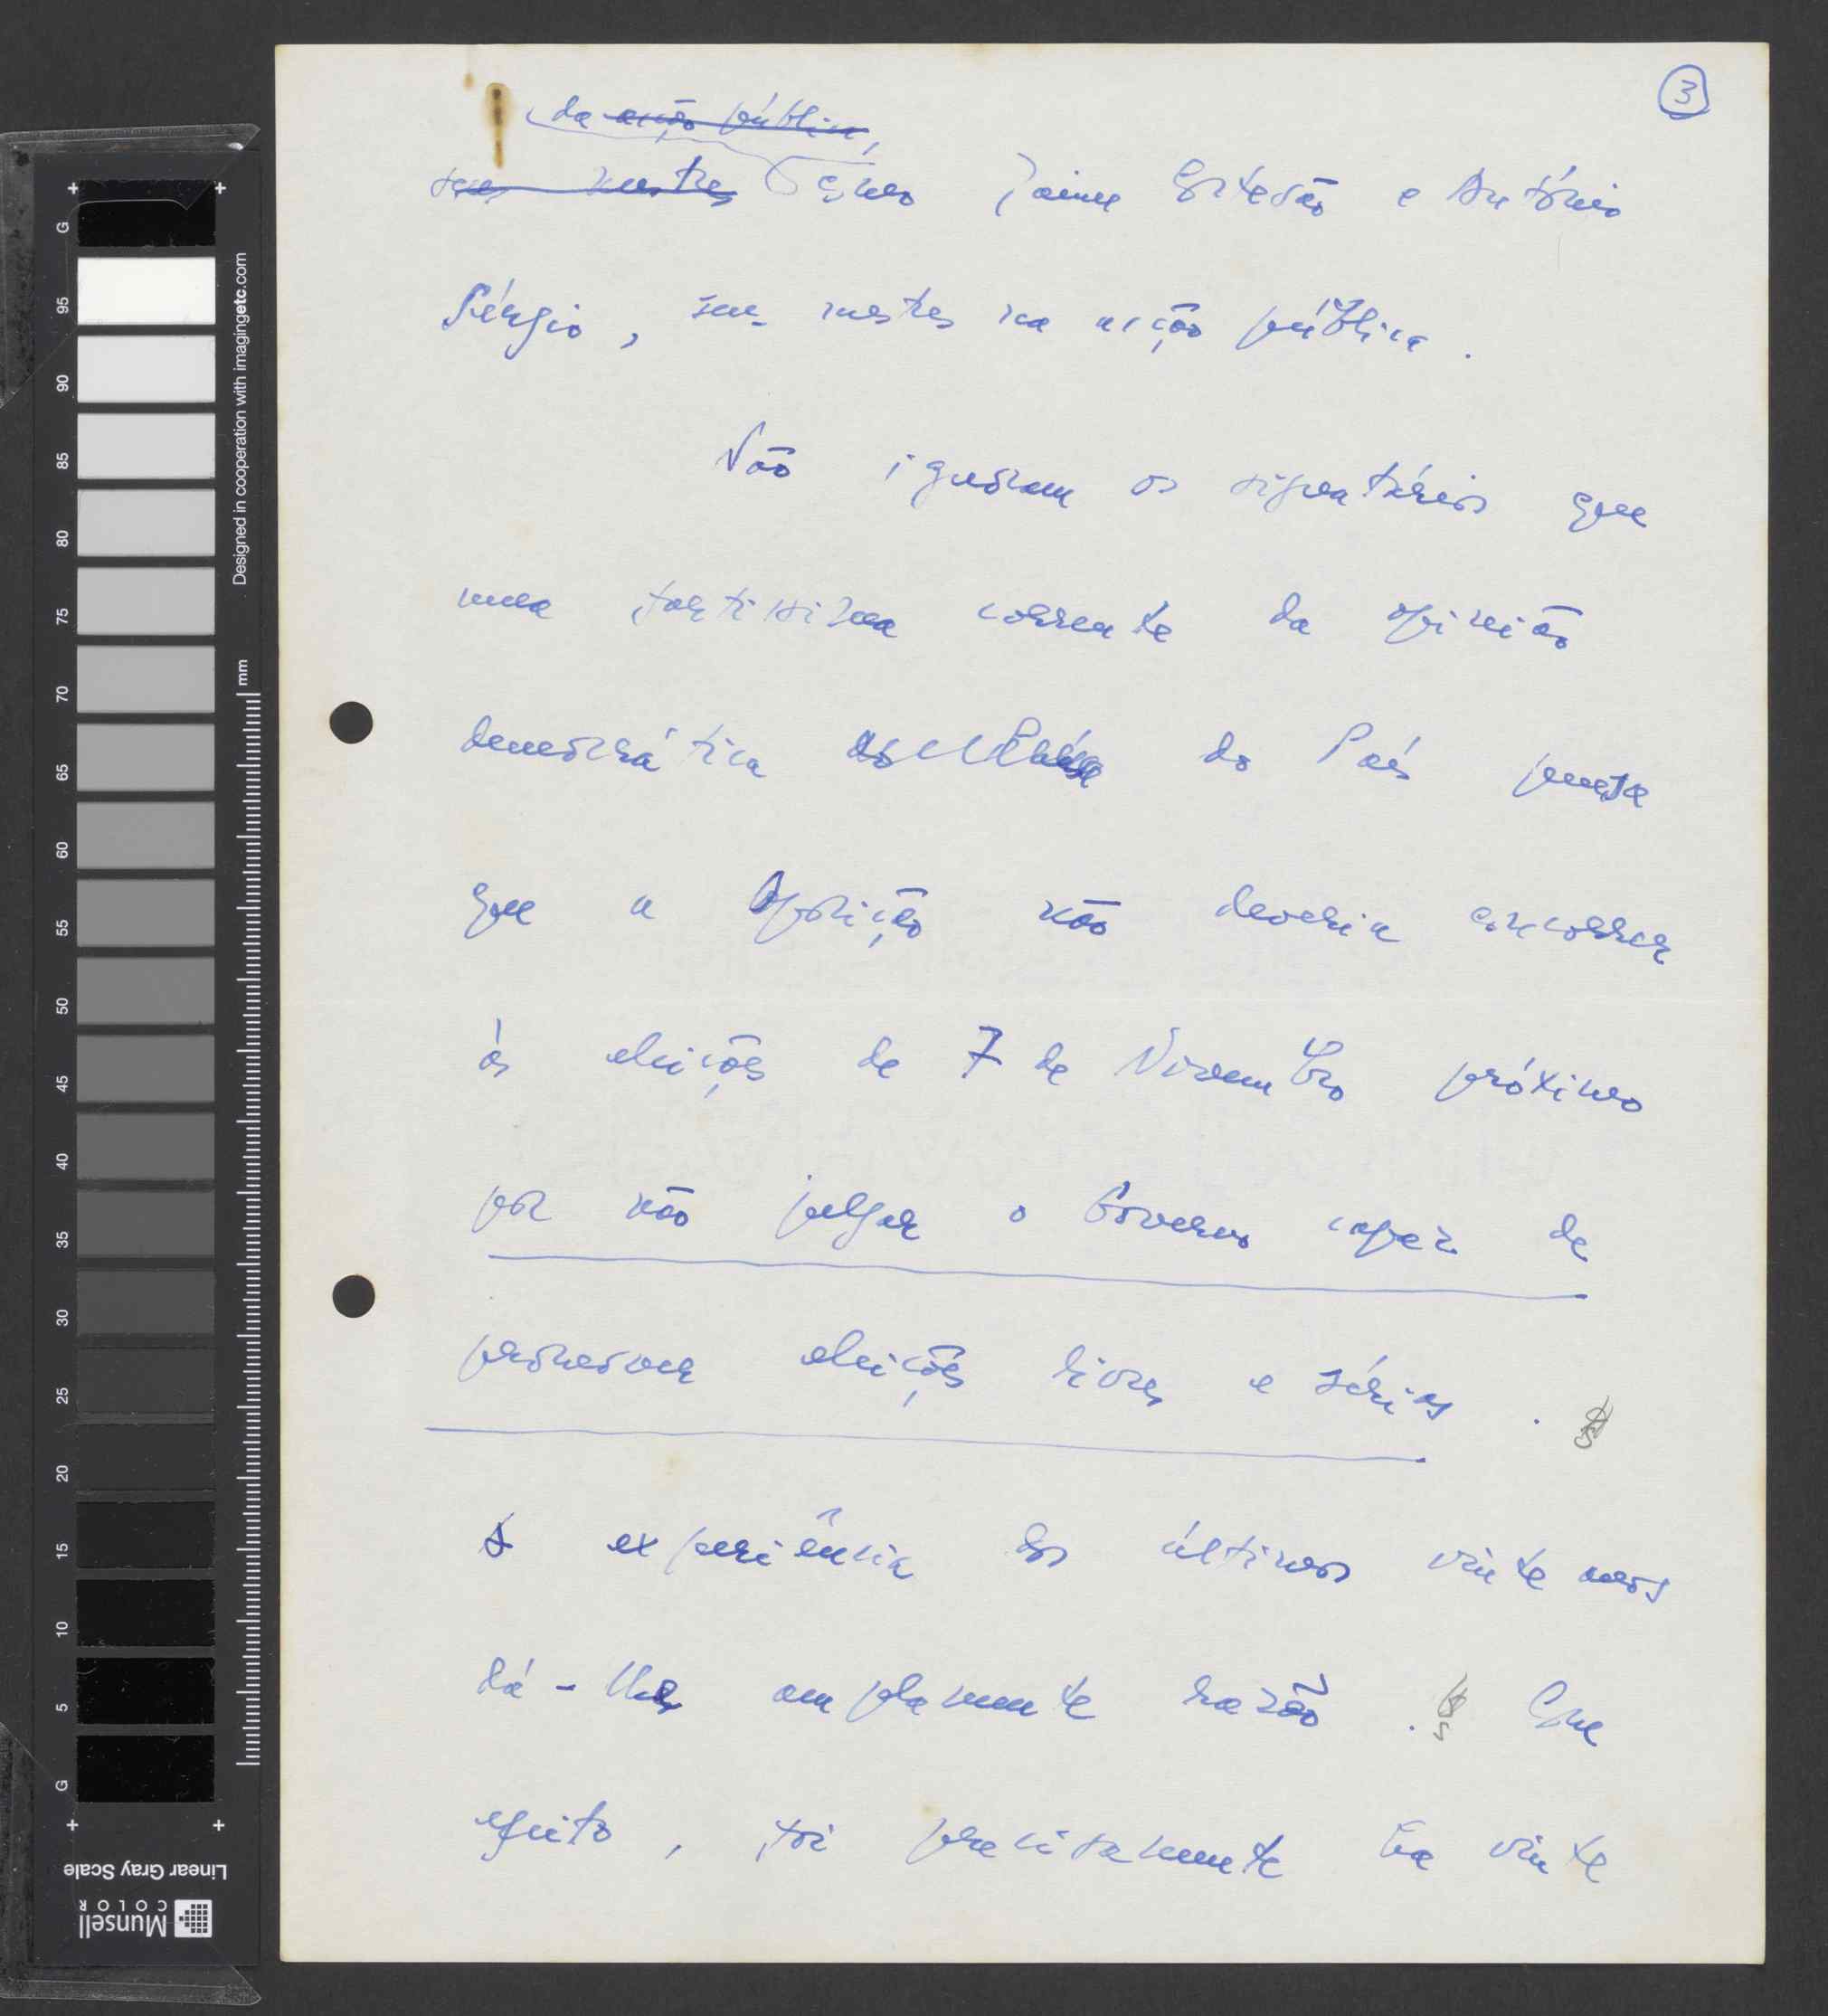 3
da acção pública,
seus mestres como Jaime Cortesão e António
Sérgio, seus mestres na acção pública.
Não ignoram os signatários que
uma fortíssima corrente da opinião
democrática do País pensa
que a Oposição não deveria concorrer
às eleições de 7 de Novembro próximo
por não julgar o Governo capaz de
promover eleições livres e sérias.
A experiência dos últimos vinte anos
dá-lhes amplamente razão. Com
efeito, foi precisamente há vinte
G 95 90 85 80 75 70 65 60 55 50 45 40 35 30 25 20 15 10 5 G
Designed in cooperation with imagingetc.com
mm
Linear Gray Scale
Munsell
COLOR